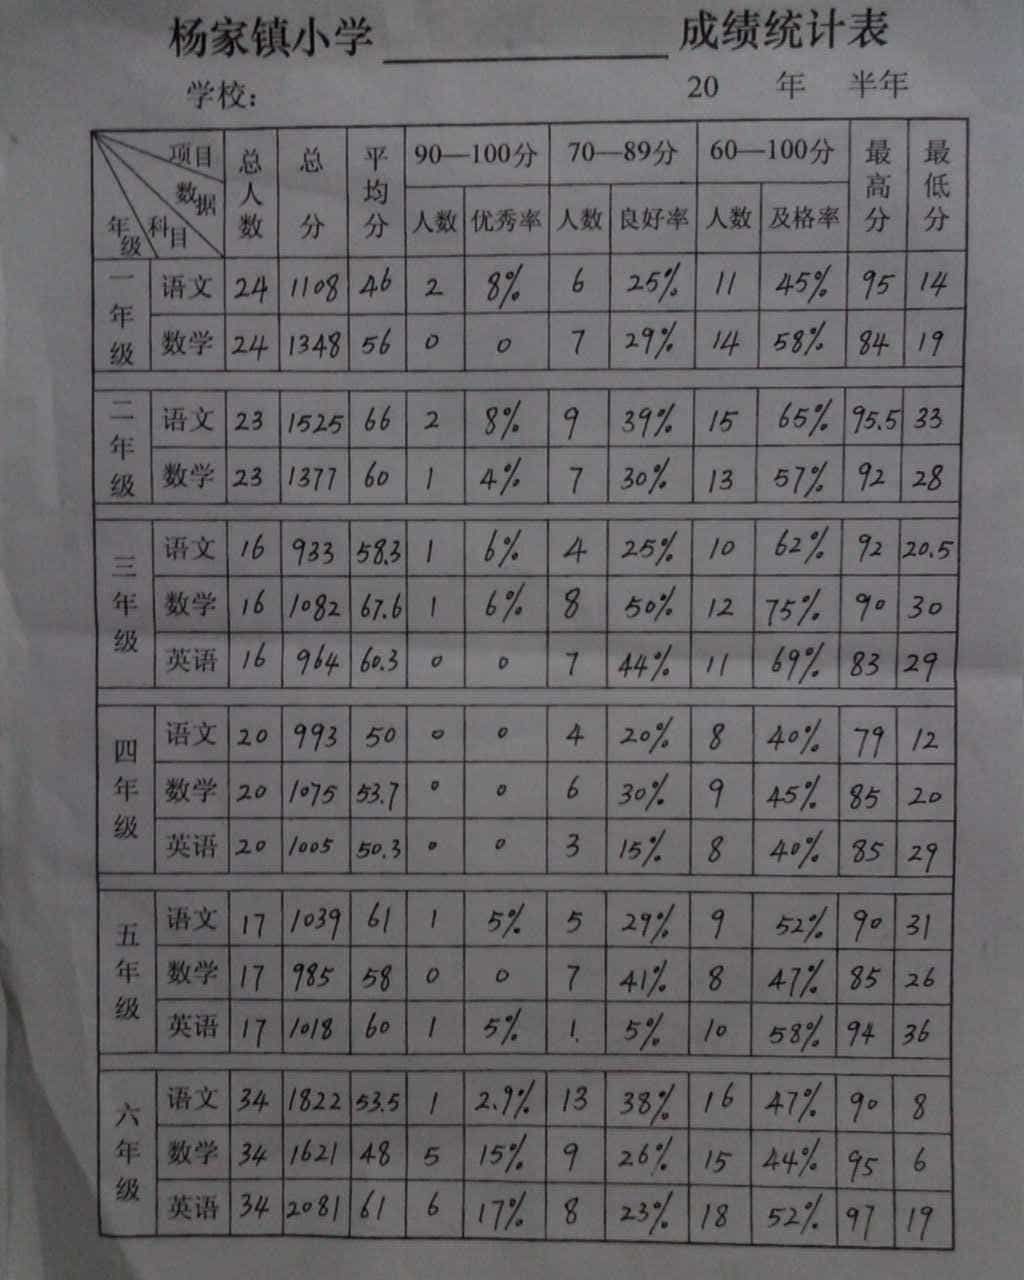 杨家镇小学 成绩统计表
学校： 20 年 半年
项目 数据 科目 年级 总人数 总分 平均分 90—100分 70—89分 60—100分 最高分 最低分
人数 优秀率 人数 良好率 人数 及格率
一年级 语文 24 1108 46 2 8% 6 25% 11 45% 95 14
数学 24 1348 56 0 0 7 29% 14 58% 84 19
二年级 语文 23 1525 66 2 8% 9 39% 15 65% 95.5 33
数学 23 1377 60 1 4% 7 30% 13 57% 92 28
三年级 语文 16 933 58.3 1 6% 4 25% 10 62% 92 20.5
数学 16 1082 67.6 1 6% 8 50% 12 75% 90 30
英语 16 964 60.3 0 0 7 44% 11 69% 83 29
四年级 语文 20 993 50 0 0 4 20% 8 40% 79 12
数学 20 1075 53.7 0 0 6 30% 9 45% 85 20
英语 20 1005 50.3 0 0 3 15% 8 40% 85 29
五年级 语文 17 1039 61 1 5% 5 29% 9 52% 90 31
数学 17 985 58 0 0 7 41% 8 47% 85 26
英语 17 1018 60 1 5% 1. 5% 10 58% 94 36
六年级 语文 34 1822 53.5 1 2.9% 13 38% 16 47% 90 8
数学 34 1621 48 5 15% 9 26% 15 44% 95 6
英语 34 2081 61 6 17% 8 23% 18 52% 97 19